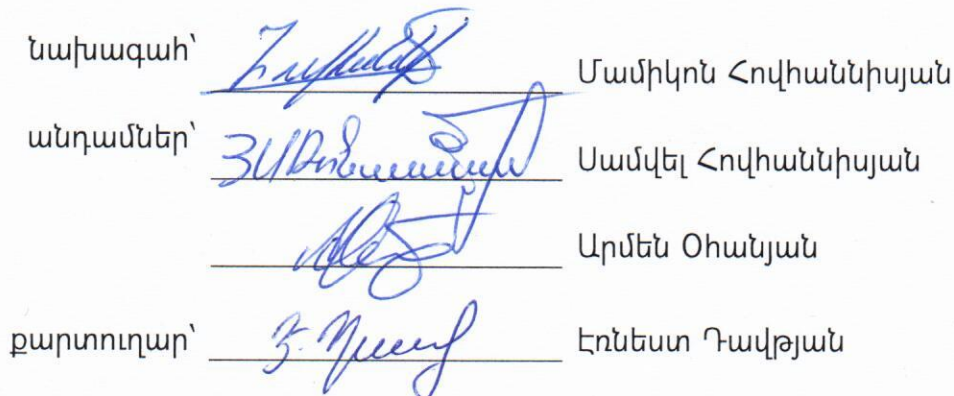 նախագահ՝ Մամիկոն Հովհաննիսյան
անդամներ՝ Սամվել Հովհաննիսյան
Արմեն Օհանյան
քարտուղար՝ Էռնեստ Դավթյան